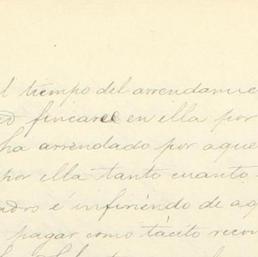 l tiempo del arrendamie
fincare en ella por
ha arrendado por aque
por ella tanto cuanto
é infiriendo de aq
pagar como tácito reco